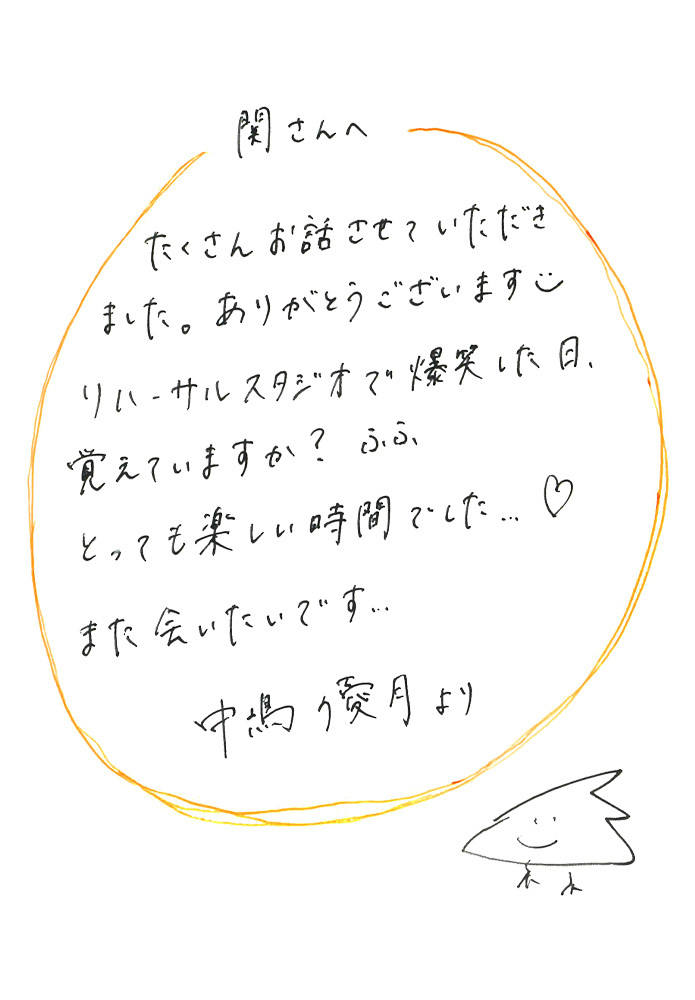 関さんへ
たくさんお話させていただき
ました。ありがとうございます
リハーサルスタジオで爆笑した日、
覚えていますか? ふふ、
とっても楽しい時間でした…♡
また会いたいです…
中嶋優月より